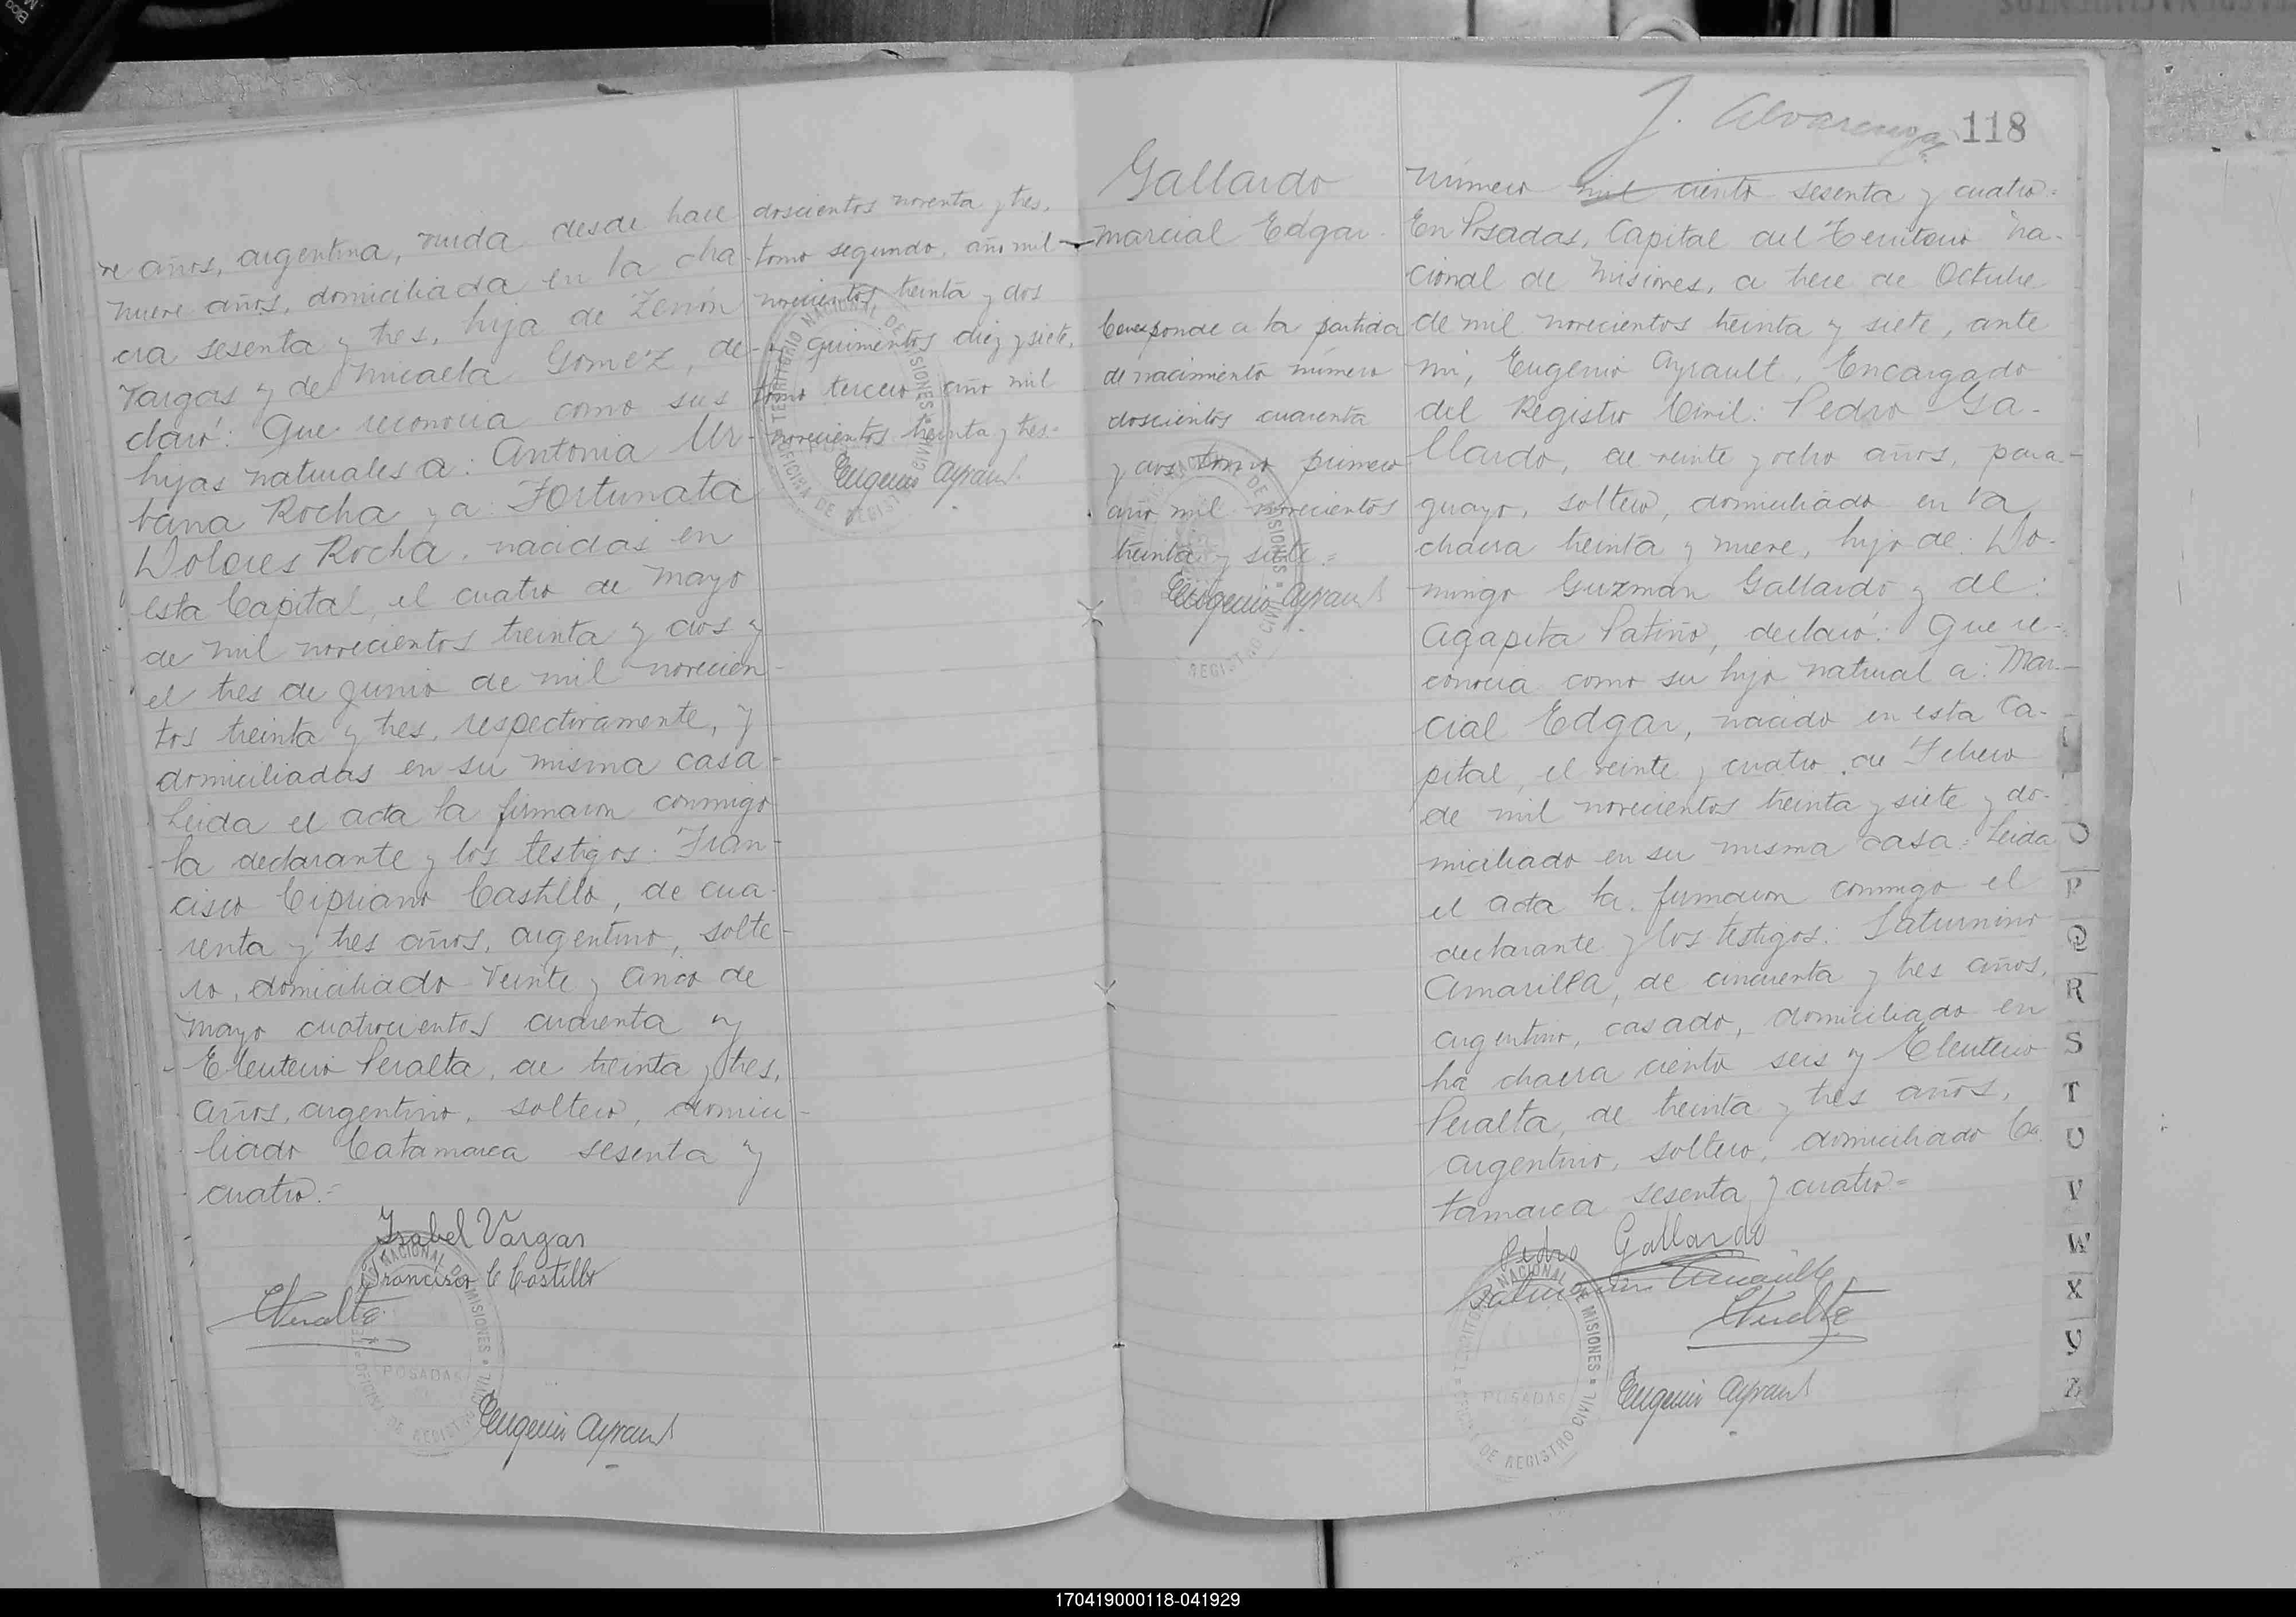 re años, argentina, viuda desde hace
nueve años, domiciliada en la cha-
cra sesenta y tres, hija de Zenón
Vargas y de Micaela Gomez, de-
claró: Que reconocia como sus
hijas naturales a: Antonia Ur-
bana Rocha y a: Fortunata
Dolores Rocha, nacidas en
esta Capital, el cuatro de Mayo
de mil novecientos treinta y dos y
el tres de Junio de mil novecien-
tos treinta y tres, respectivamente, y
domiciliadas en su misma casa-
Leida el acta la firmaron conmigo
la declarante y los testigos: Fran-
cisco Cipriano Castillo, de cua-
renta y tres años, argentino, solte-
ro, domiciliado Veinte y Cinco de
Mayo cuatrocientos cuarenta y
Eleuterio Peralta, de treinta y tres,
años, argentino, soltero, domici-
liado Catamarca sesenta y
cuatro.=
Isabel Vargas
Francisco C Castillo
EPeralta
Eugenio Ayraul
TERRITORIO NACIONAL DE MISIONES
OFICINA DE REGISTRO CIVIL
POSADAS
doscientos noventa y tres,
tomo segundo, año mil
novecientos treinta y dos
y quinientos diez y siete,
tomo tercero año mil
novecientos treinta y tres=
Eugenio Ayraul
TERRITORIO NACIONAL DE MISIONES
OFICINA DE REGISTRO CIVIL
J. Alvarenga
118
Gallardo
Marcial Edgar.
Corresponde a la partida
de nacimiento número
doscientos cuarenta
y dos tomo primero
año mil novecientos
treinta y siete.=
Eugenio Ayraul
DE MISIONES
REGISTRO CIVIL
Número mil ciento sesenta y cuatro=
En Posadas, Capital del Territorio Na-
cional de Misiones, a trece de Octubre
de mil novecientos treinta y siete, ante
mi, Eugenio Ayrault, Encargado
del Registro Civil: Pedro Ga-
llardo, de veinte y ocho años, para-
guayo, soltero, domiciliado en la
chacra treinta y nueve, hijo de: Do-
mingo Guzman Gallardo y de:
Agapita Patiño, declaró: Que re-
conocia como su hijo natural a: Mar-
cial Edgar, nacido en esta Ca-
pital, el veinte y cuatro de Febrero
de mil novecientos treinta y siete y do-
miciliado en su misma casa. Leida
el acta la firmaron conmigo el
declarante y los testigos: Saturnino
Amarilla, de cincuenta y tres años,
argentino, casado, domiciliado en
la chacra ciento seis y Eleuterio
Peralta, de treinta y tres años,
argentino, soltero, domiciliado Ca
tamarca sesenta y cuatro=
Pedro Gallardo
Saturnino Amarilla
EPeralta
Eugenio Ayraul
TERRITORIO NACIONAL DE MISIONES
DE REGISTRO CIVIL
POSADAS
P
Q
R
S
T
U
V
W
X
Y
Z
170419000118-041929